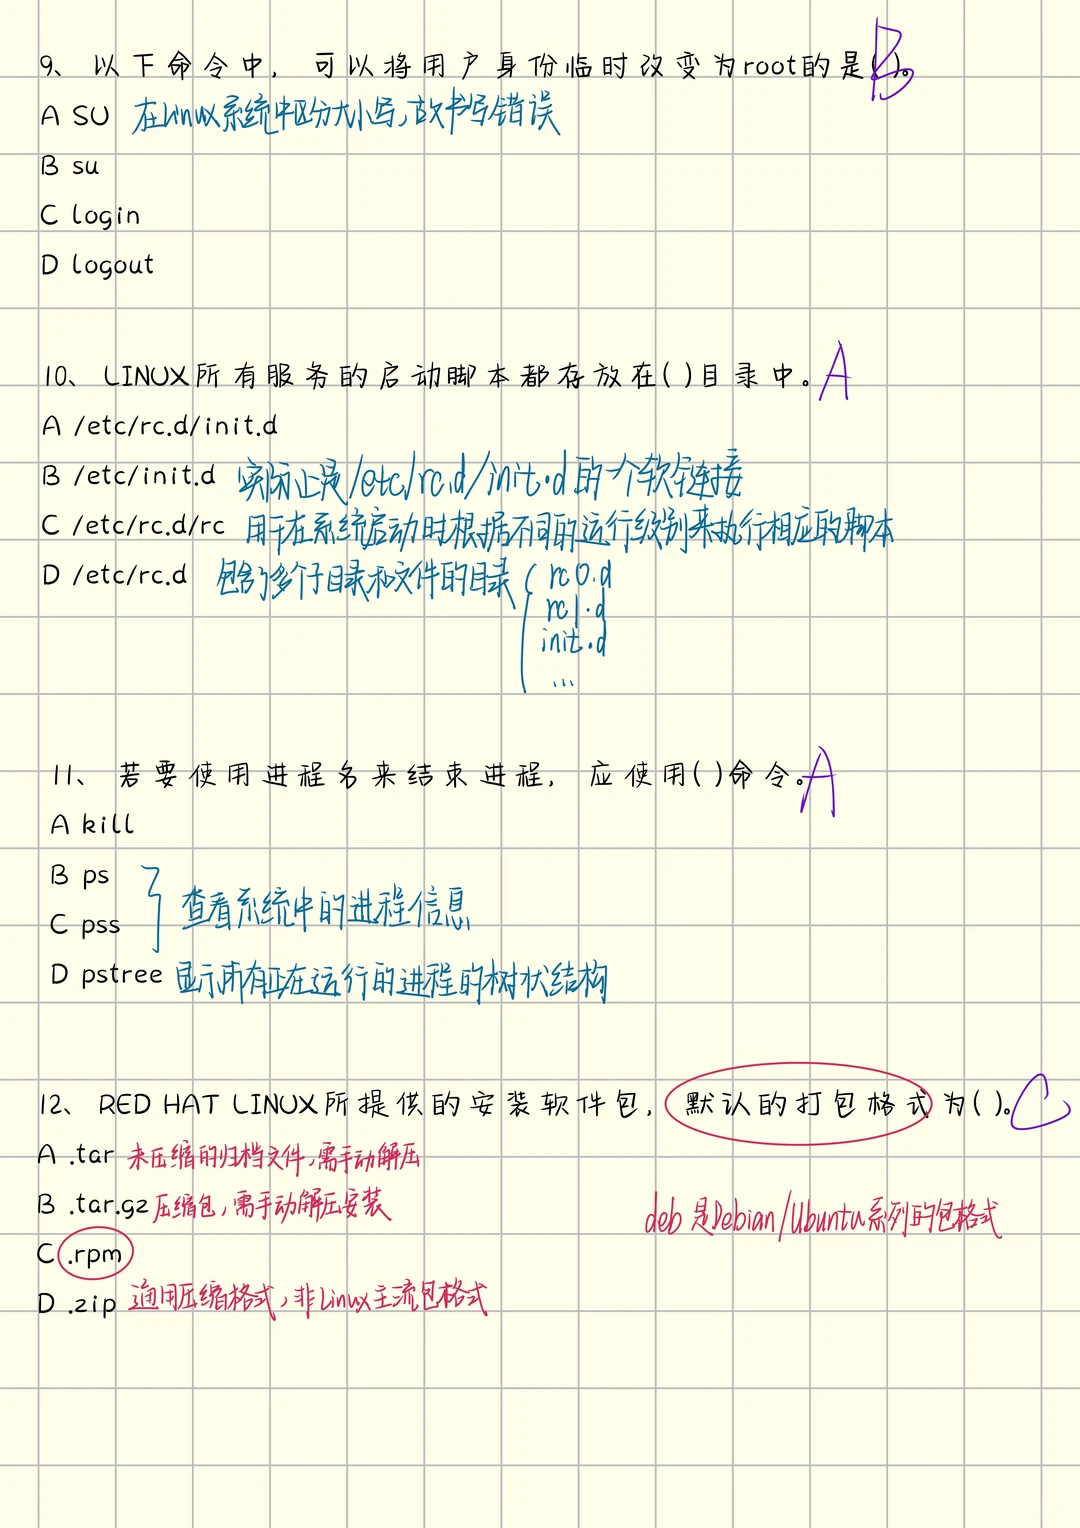 9、以下命令中，可以将用户身份临时改变为root的是( )。B
A SU 在Linux系统中区分大小写,故书写错误
B su
C login
D logout
10、LINUX所有服务的启动脚本都存放在( )目录中。A
A /etc/rc.d/init.d
B /etc/init.d 实际上是/etc/rc.d/init.d的一个软链接
C /etc/rc.d/rc 用于在系统启动时根据不同的运行级别来执行相应的脚本
D /etc/rc.d 包含了多个子目录和文件的目录 rc0.d
rc1.d
init.d
...
11、若要使用进程名来结束进程，应使用( )命令。A
A kill
B ps
查看系统中的进程信息
C pss
D pstree 显示所有正在运行的进程的树状结构
12、RED HAT LINUX所提供的安装软件包，默认的打包格式为( )。C
A .tar 未压缩的归档文件,需手动解压
B .tar.gz 压缩包,需手动解压安装
deb 是Debian/Ubuntu系列的包格式
C .rpm
D .zip 通用压缩格式,非Linux主流包格式